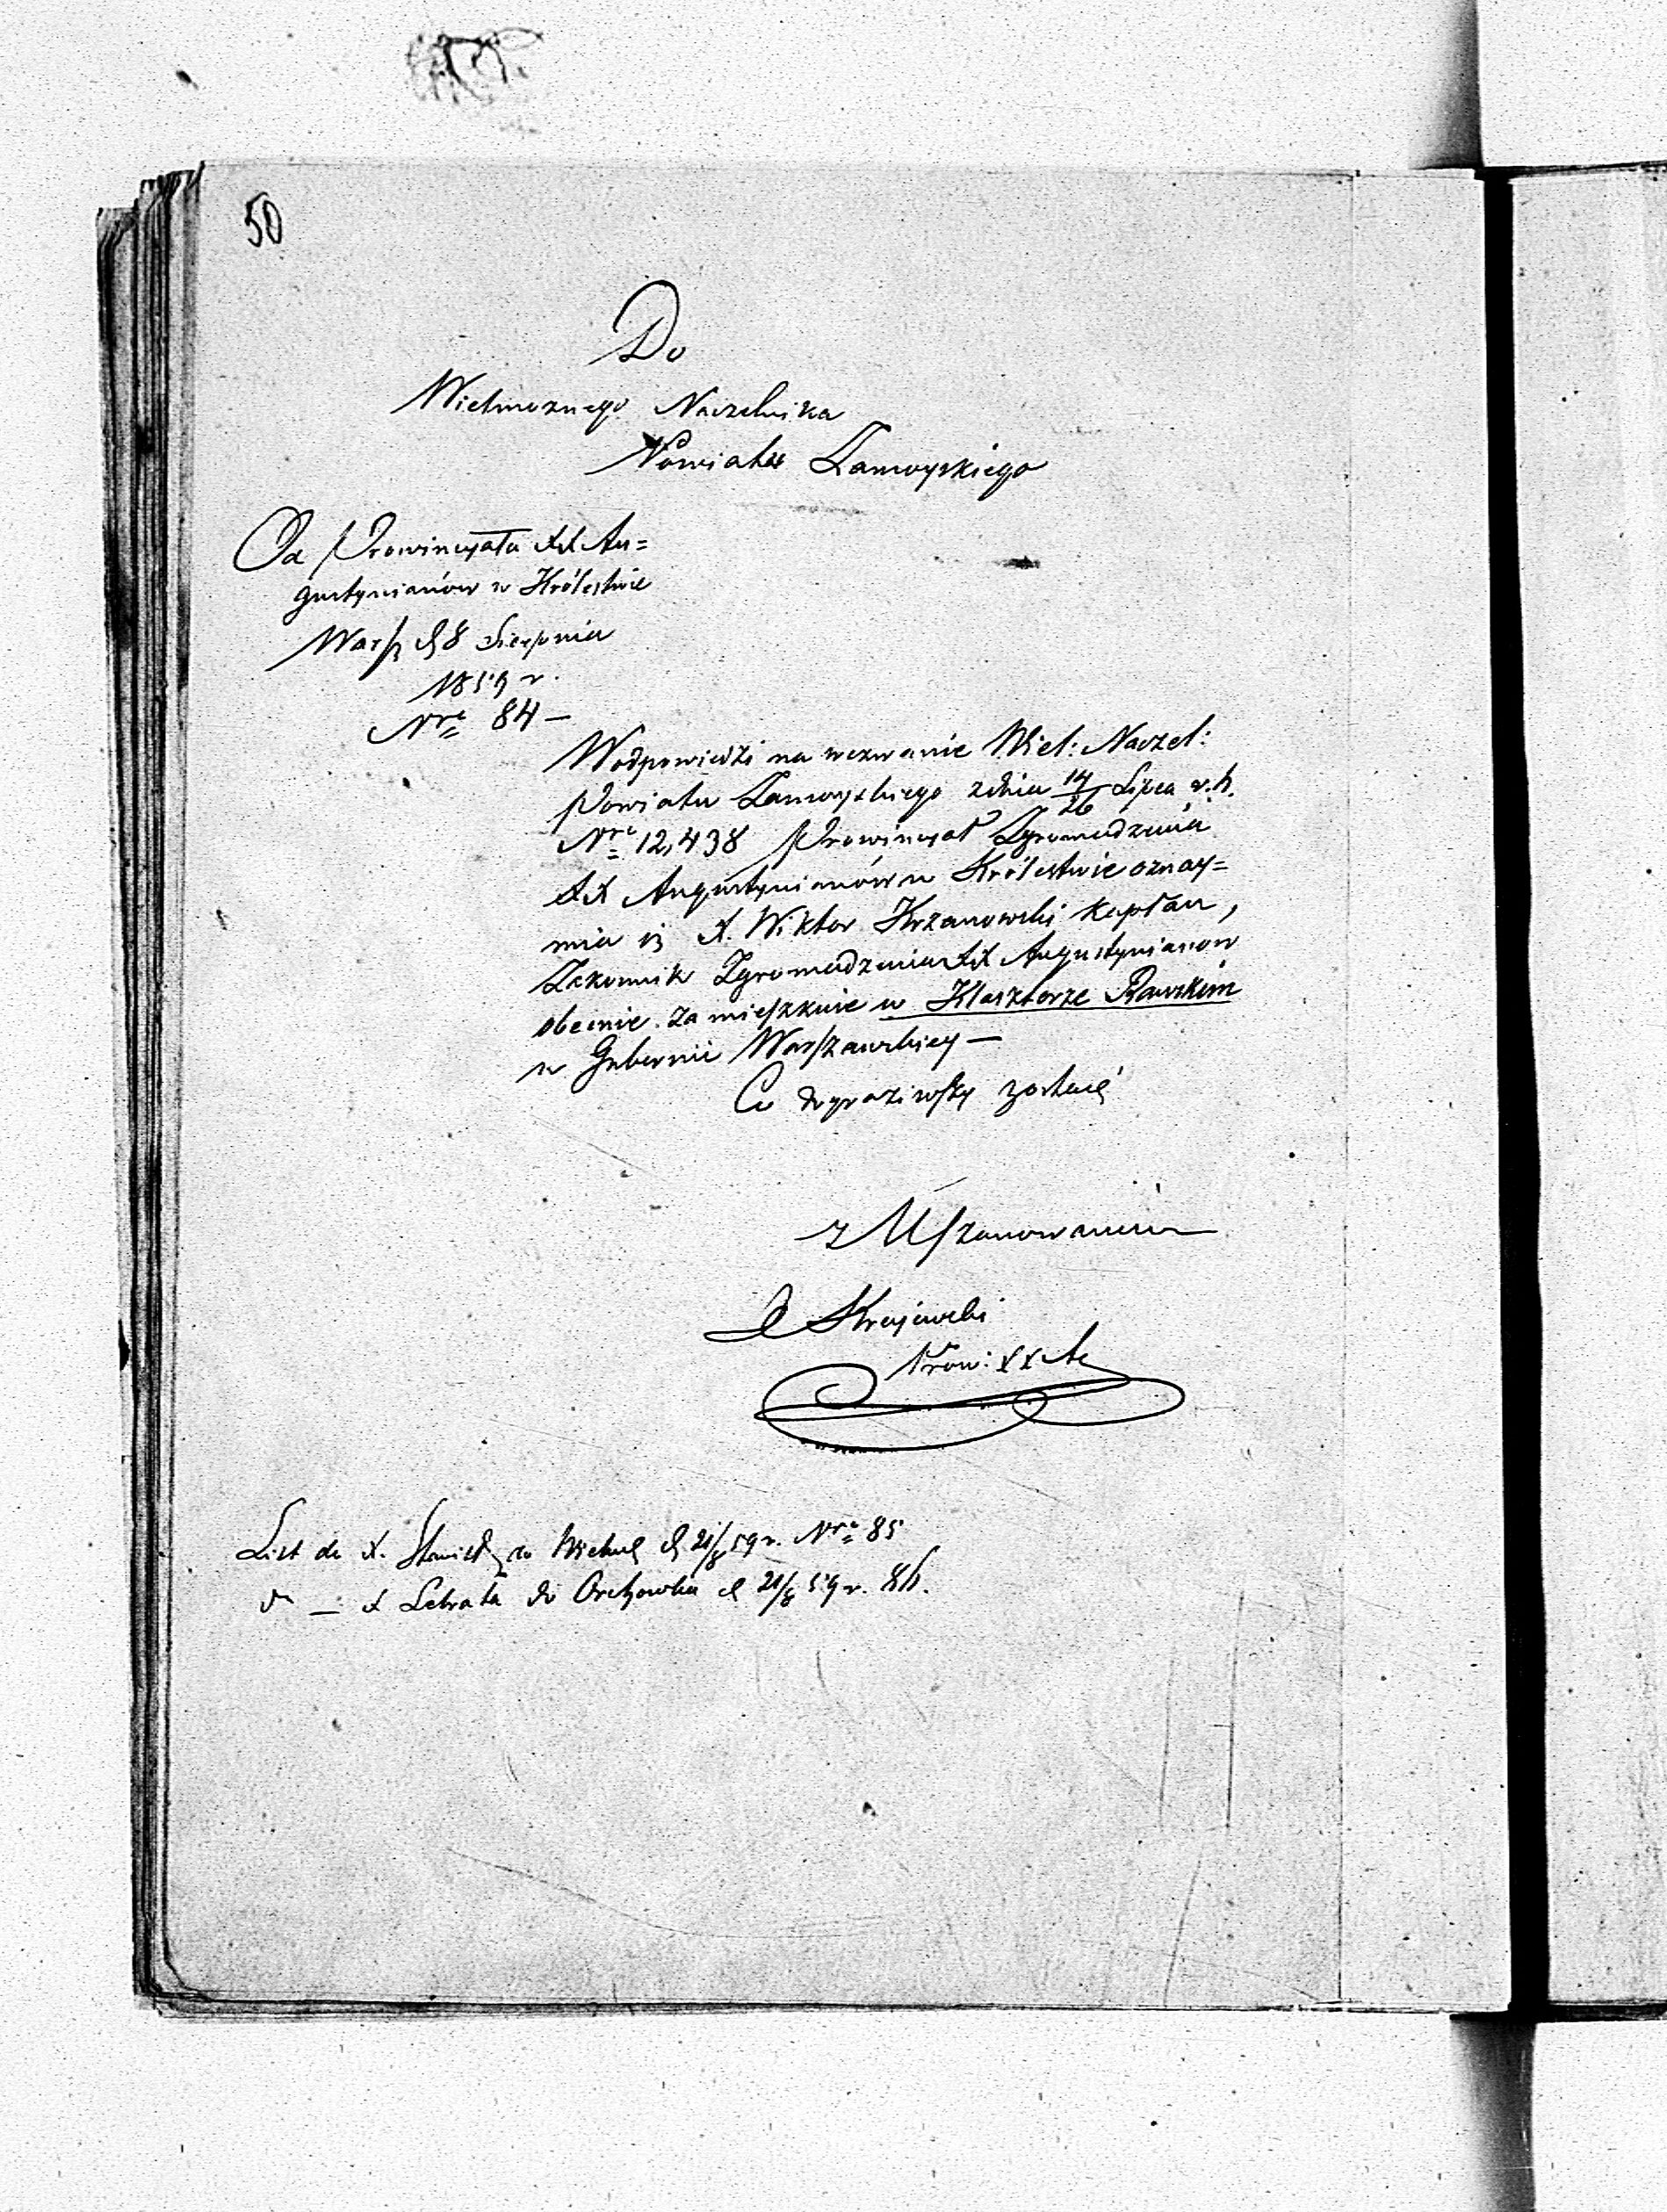 50
Do
Wielmożnego Naczelnika
Powiatu Zamoyskiego
Od Prowincyała XX Au=
gustynianów w Królestwie
Warsz d 8 Sierpnia
1859 r.
Nro 84 —
W odpowiedzi na wezwanie Wiel: Naczel:
Powiatu Zamoyskiego z dnia 14/26 Lipca r. b.
Nro 12,438 Prowincyał Zgromadzenia
XX Augustynianów w Królestwie oznay=
mia iż X. Wiktor Krzanowski Kapłan,
Zakonnik Zgromadzenia XX Augustynianow
obecnie zamieszkuie w Klasztorze Rawskim
w Gubernii Warszawskiey —
Co wyraziwszy zostaię
z Uszanowaniem
Krajewski
Prow: XX A
List do X. do d 21/8 59 r. Nro 85
do — X Cebrata do Orchowka d 21/8 59 r. 86.